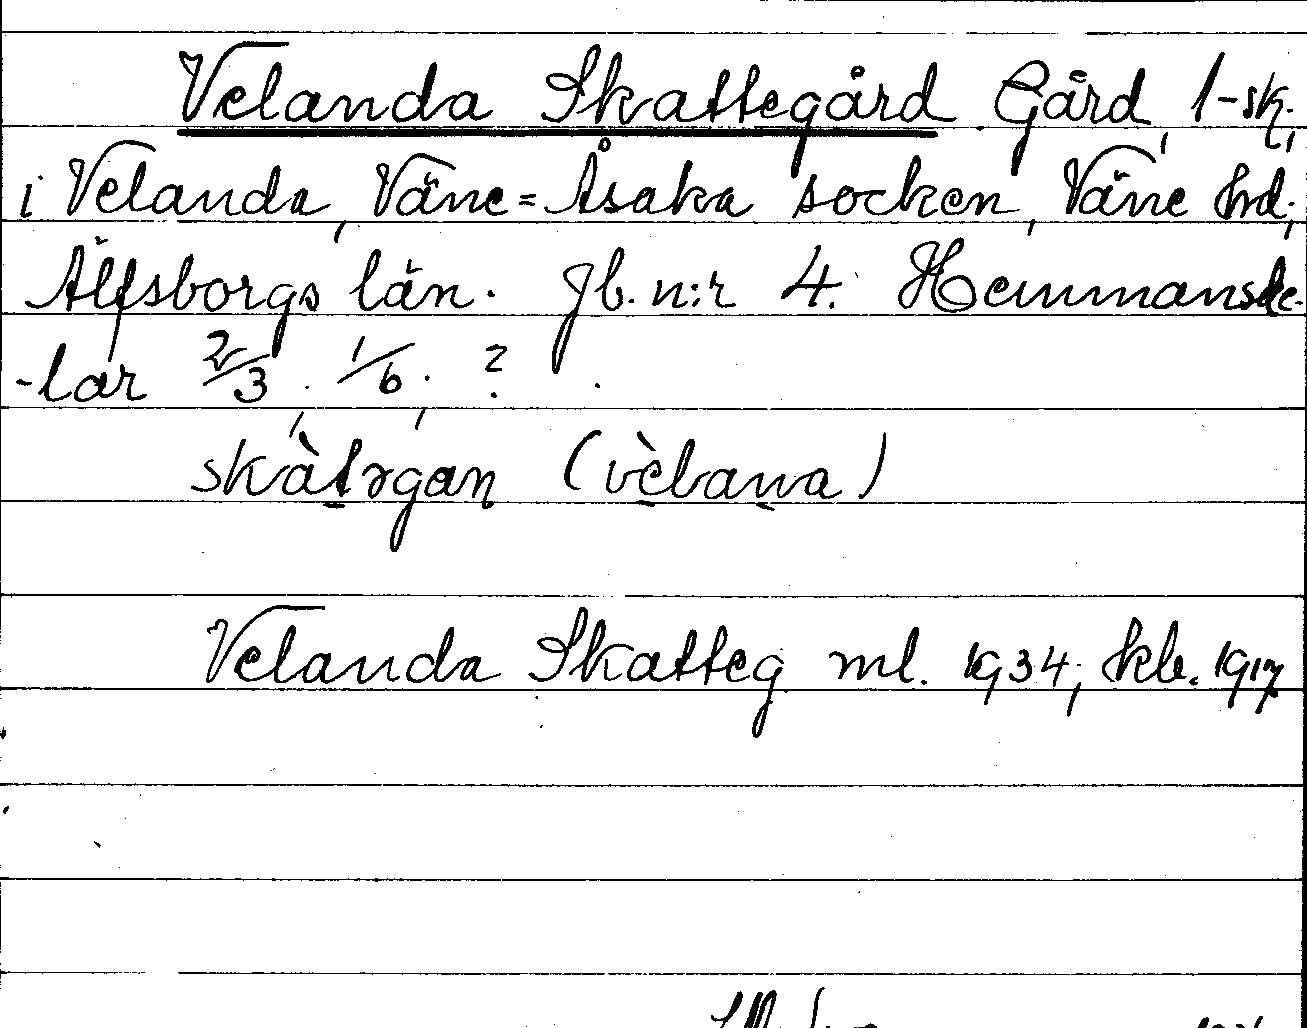 Velanda Skattegård. Gård, 1-sk.,
i Velanda, Väne=Åsaka socken, Väne hd.,
Älfsborgs län. Jb. n:r 4. Hemmansde-
-lar 2/3, 1/6, ?.
skàtrgan (vèlana)
Velanda Skatteg ml. 1934; kb. 1917